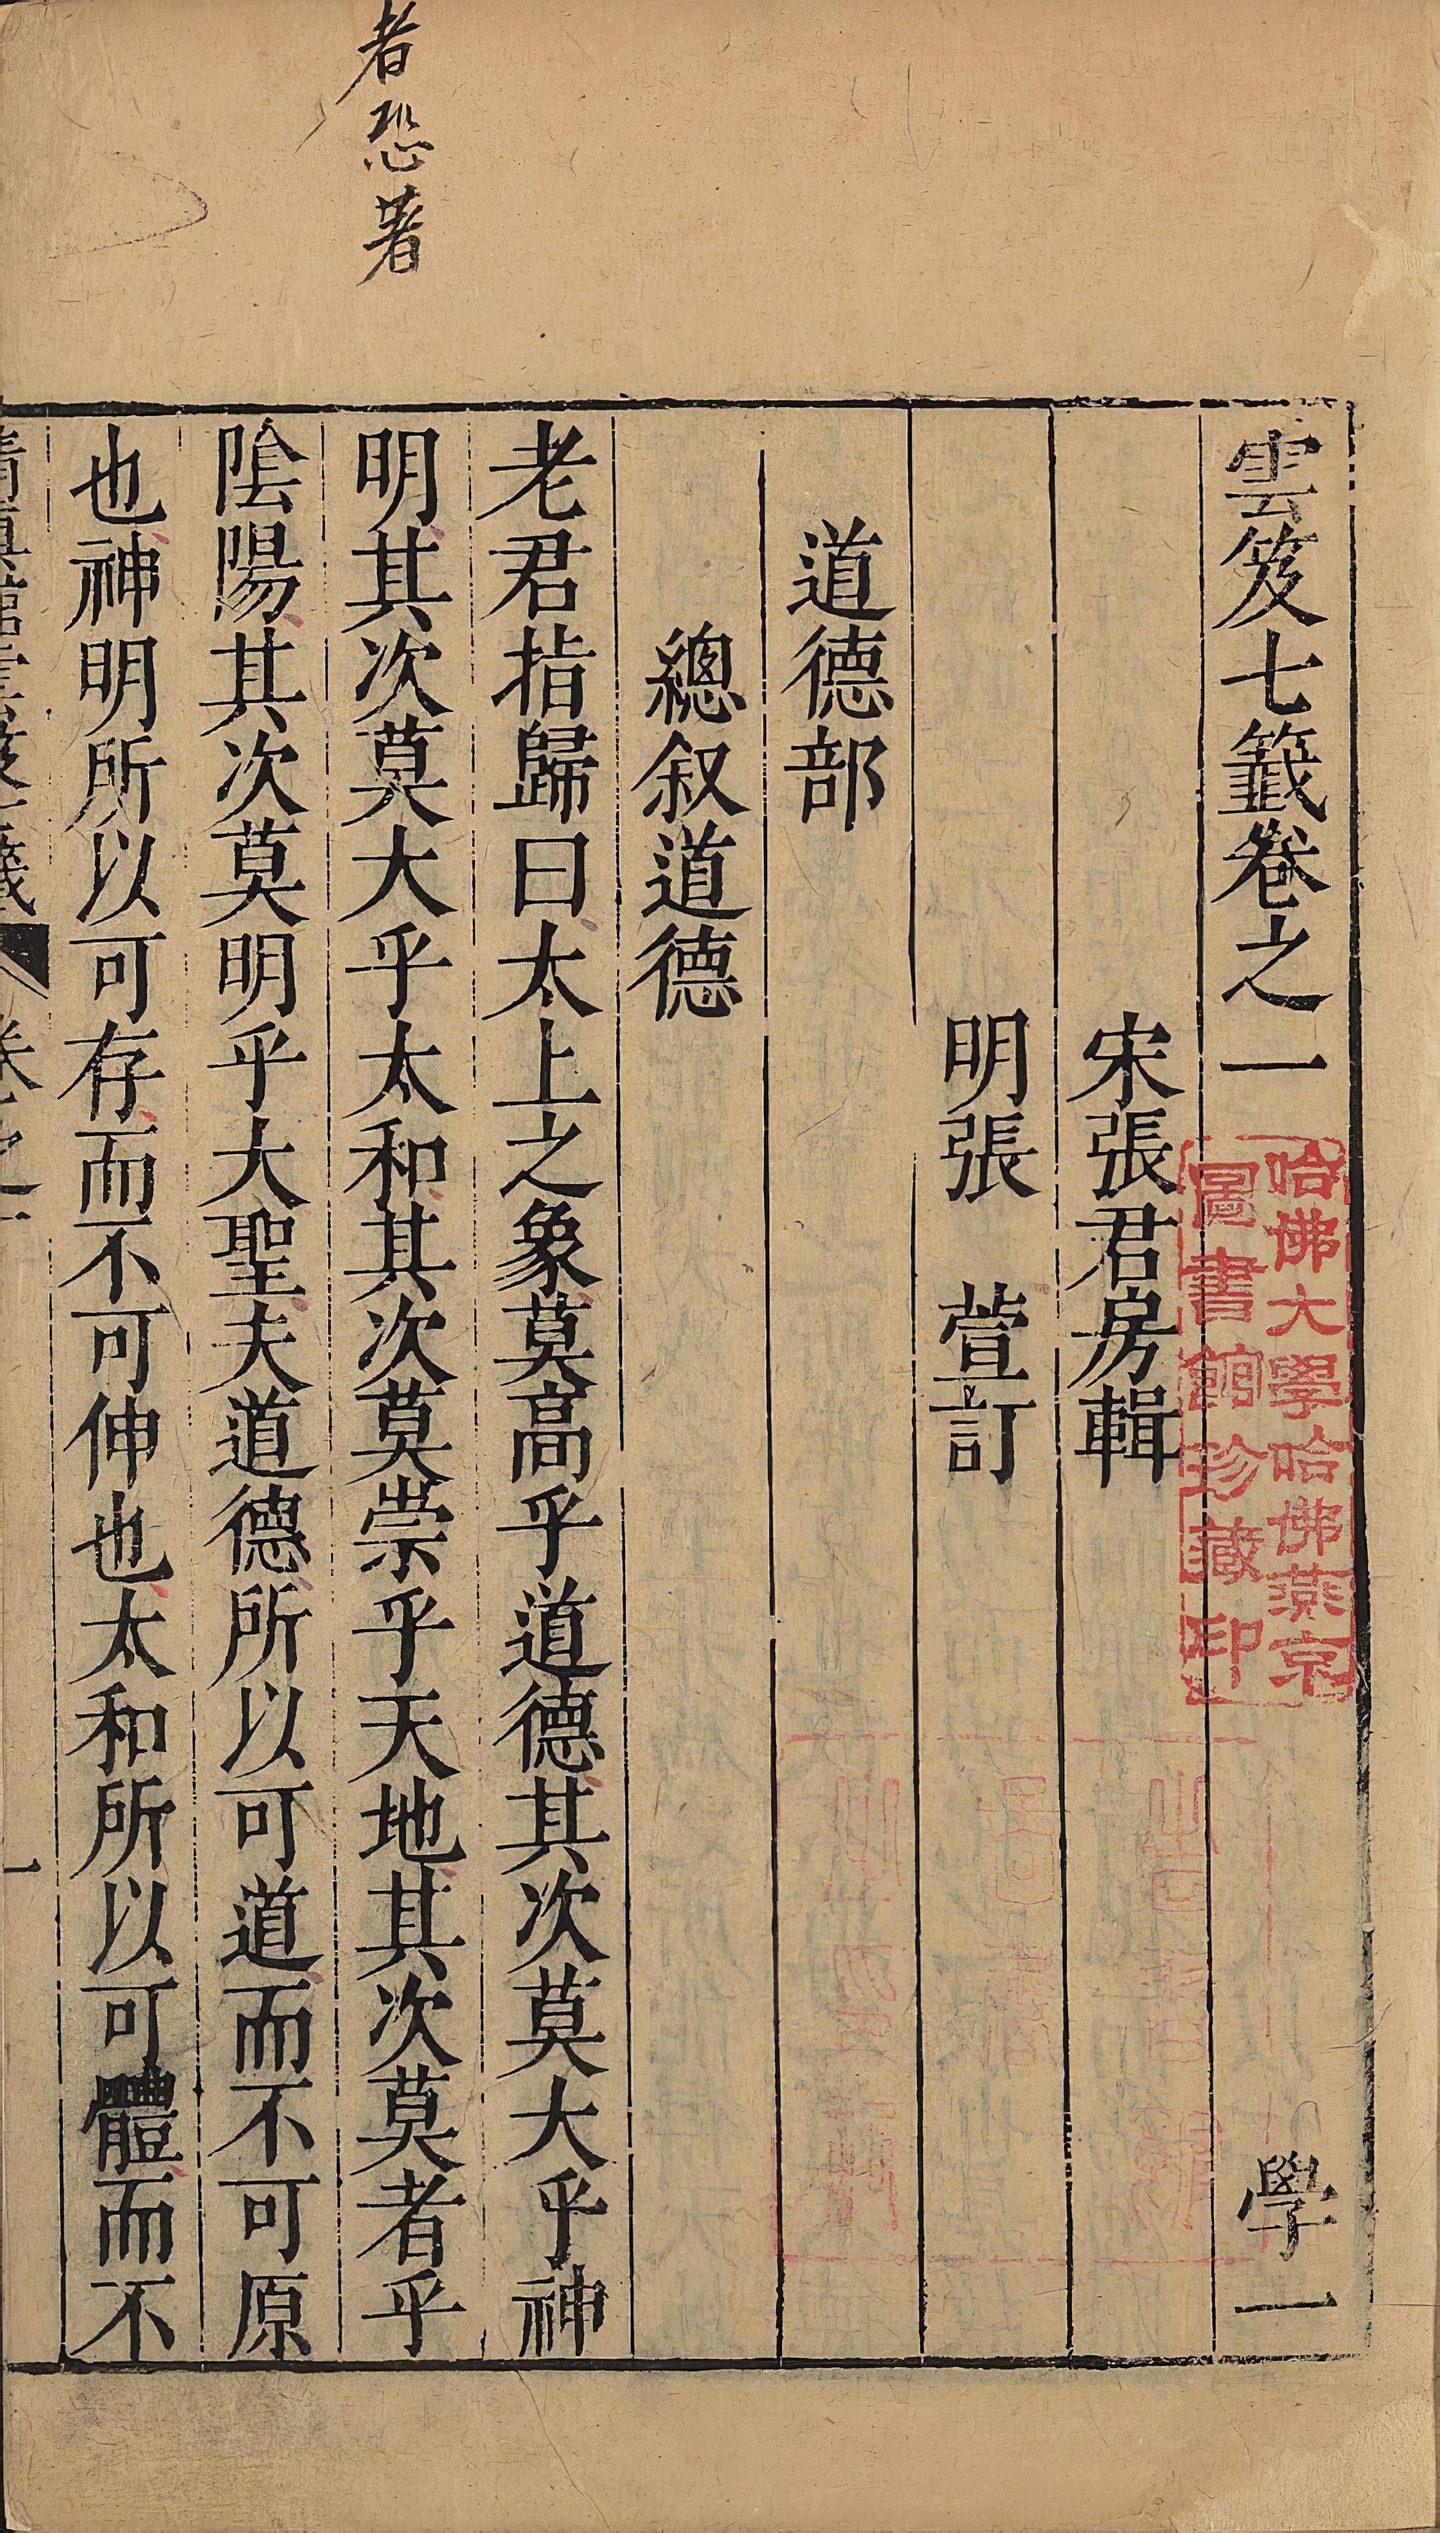 者恐著
雲笈七籤卷之一　學一
宋張君房輯
明張　萱訂
道德部
總叙道德
老君指歸曰太上之象莫高乎道德其次莫大乎神
明其次莫大乎太和其次莫崇乎天地其次莫者乎
陰陽其次莫明乎大聖夫道德所以可道而不可原
也神明所以可存而不可伸也太和所以可體而不
清真館雲笈七籤　卷之一　一
哈佛大學哈佛燕京
圖書館珍藏印